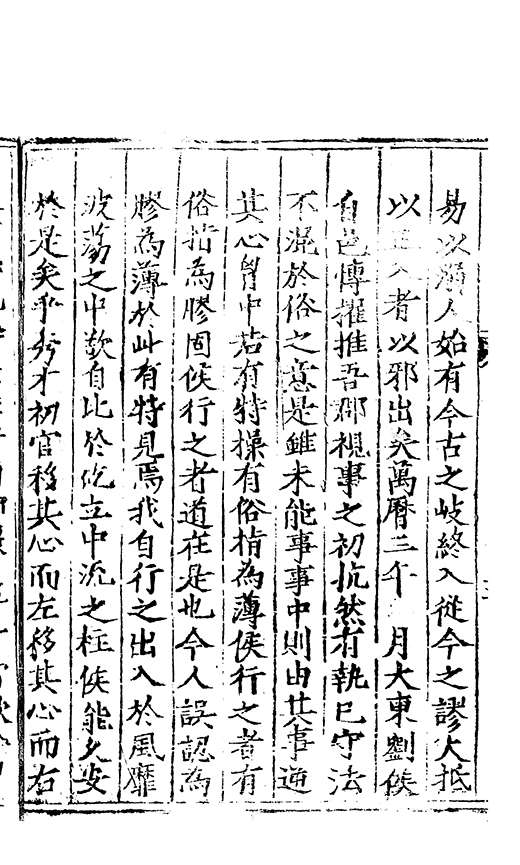 易以溺人始有今古之岐終入從今之謬大抵
以正入者以邪出矣萬曆三年 月大東劉侯
自邑博擢推吾郡視事之初抗然有執已守法
不混於俗之意是雖未能事事中則由其事迹
其心胷中若有特操有俗指為薄侯行之者有
俗指為膠固侯行之者道在是也今人誤認為
膠為薄於此有特見焉我自行之出入於風靡
波蕩之中歘自比於屹立中流之柱侯能久安
於是矣乎夸才初官移其心而左移其心而右